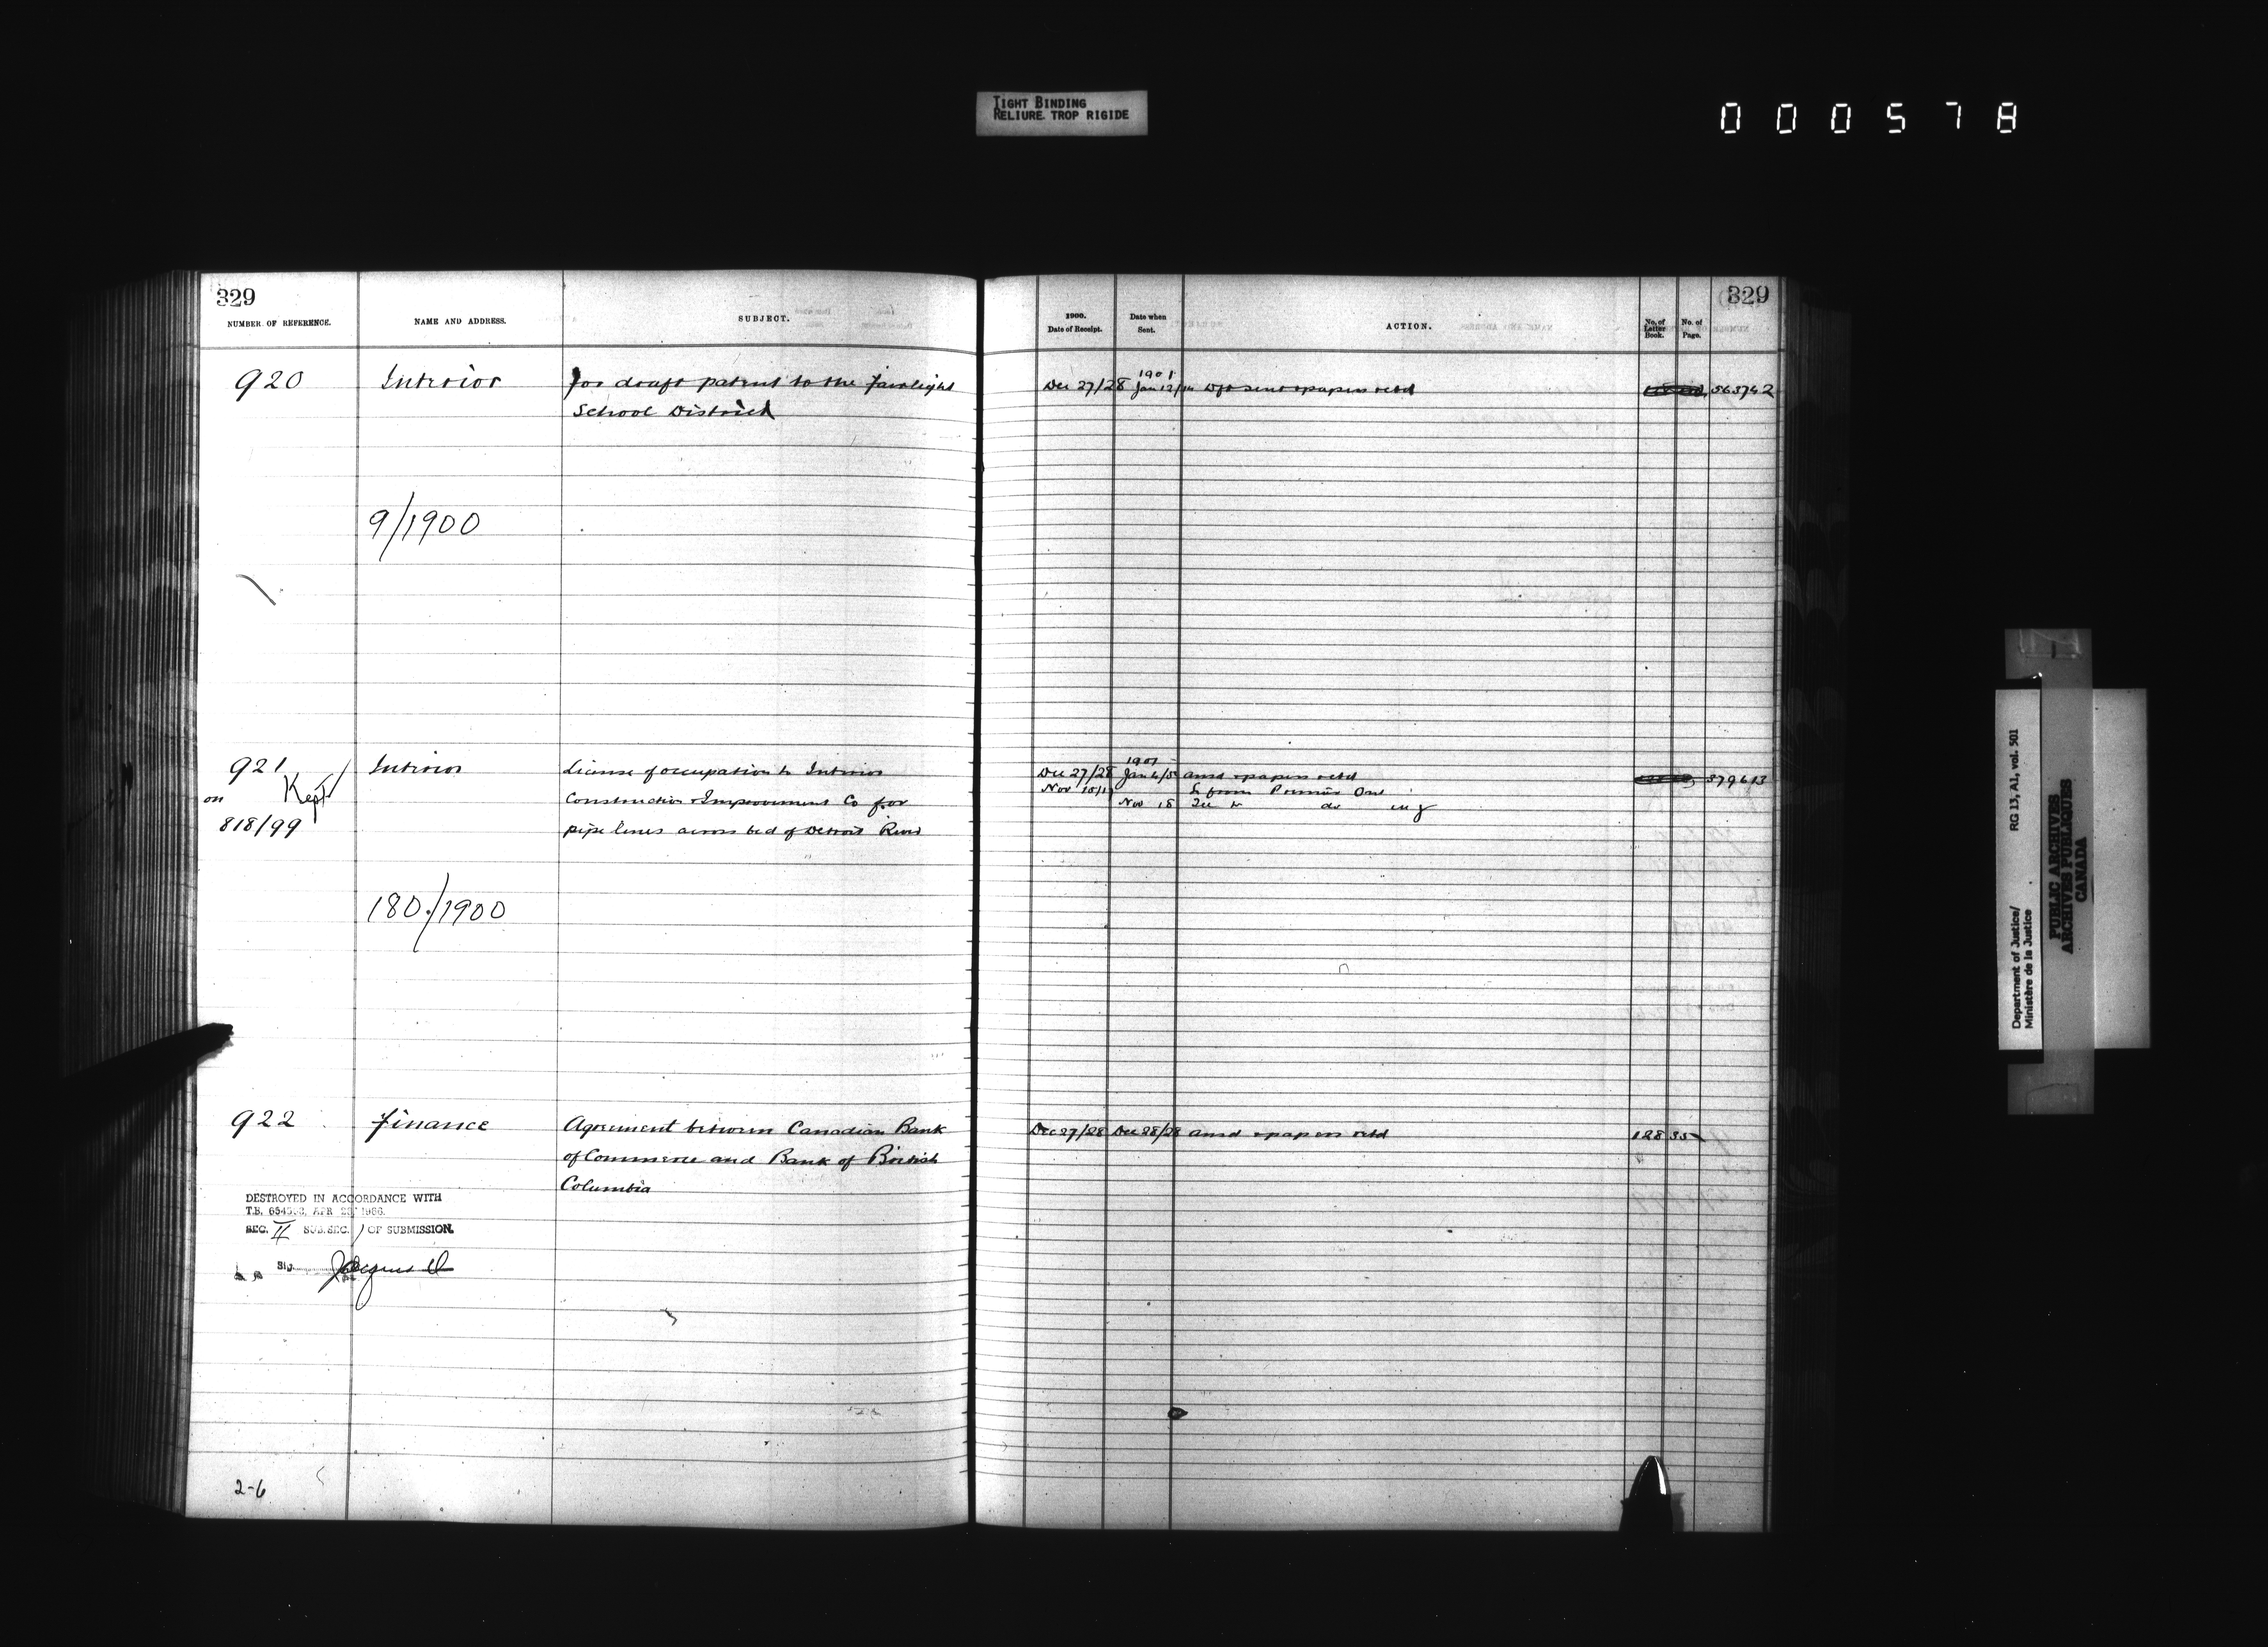 TIGHT BINDING
RELIURE TROP RIGIDE
000578
329
NUMBER OF REFERENCE.
NAME AND ADDRESS.
SUBJECT.
920
Interior
for draft patent to the Fairlight
School District
9/1900
921
Kept
on
818/99
Interior
License of occupation to Interior
Construction & Improvement Co for
pipe lines across bed of Detroit River
180/1900
922
Finance
Agreement between Canadian Bank
of Commerce and Bank of British
Columbia
DESTROYED IN ACCORDANCE WITH
T.B. APR 1966
SEC. II SUB.SEC. 1 OF SUBMISSION.
Sig.
2-6
329
1900.
Date of Receipt.
Date when
Sent.
ACTION.
No. of
Letter
Book.
No. of
Page.
1901
Dec 27/28 Jan 12/14 Dft sent & papers retd 563742
1901
Dec 27/28 Jan 4/5 ansd & papers retd 379613
Nov L from Premier Ont
Nov 18 do
Dec 27/28 Dec 28/28 ansd & papers retd 128 35
Department of Justice/
Ministère de la Justice
RG 13, A1, vol. 501
PUBLIC ARCHIVES
ARCHIVES PUBLIQUES
CANADA